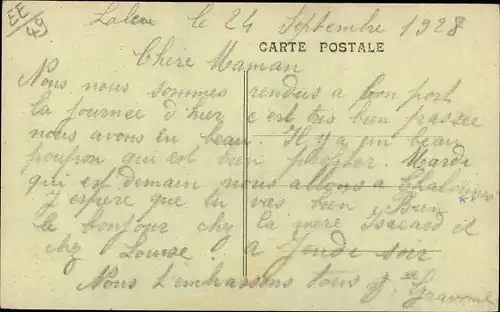 EE
49
le 24 Septembre 1928
CARTE POSTALE
Chere Maman
Nous nous sommes rendus a bon port
la journee d'hier c est tres bien passee
nous avons eu beau. Il y a un beau
poupon qui est bien Mardi
qui est demain nous allons a
J espere que tu vas bien Bien
le bonjour chez la mere et
chez Louise. a Jeudi soir
Nous t'embrassons tous